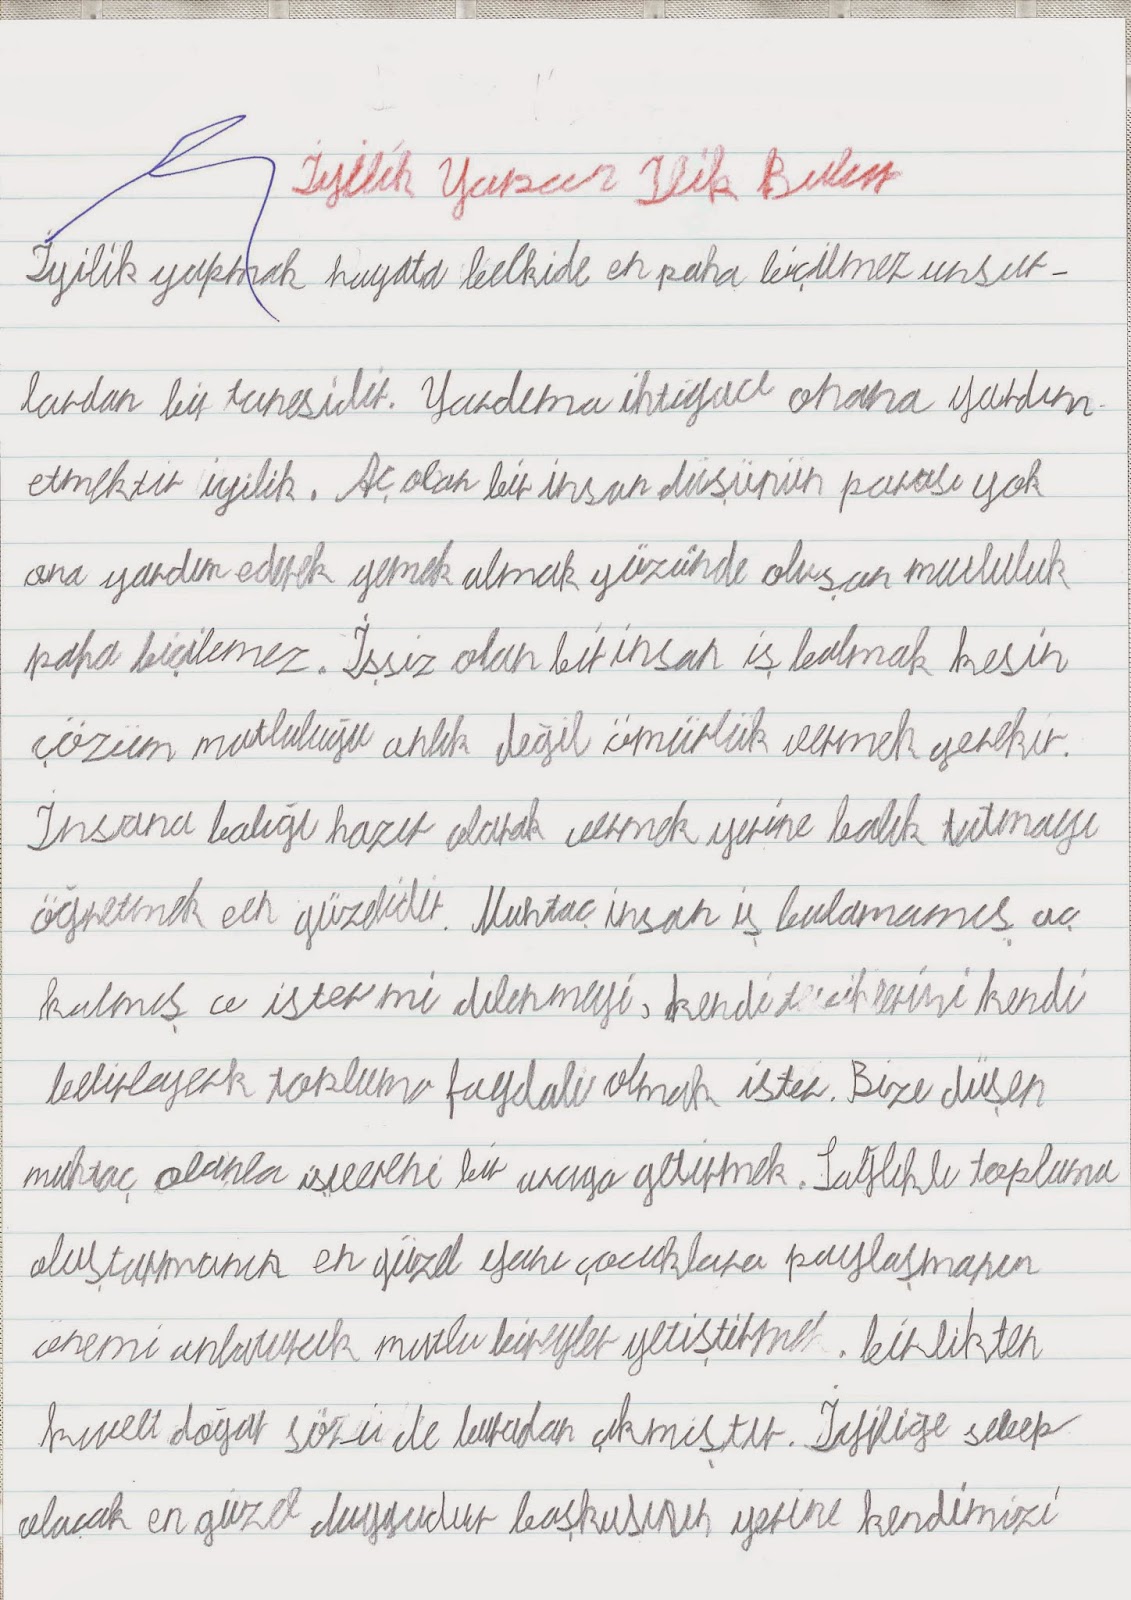 İyilik Yapan İlik Bulur
İyilik yapmak hayata belkide en paha biçilmez unsur-
lardan bir tanesidir. Yardıma ihtiyacı onana yardım
etmektir iyilik. Aç olan bir insan düşünün parası yok
ona yardım ederek yemek almak yüzünde oluşan mutluluk
paha biçilemez. İşsiz olan bir insan iş bulmak kesin
çözüm mutluluğu anlık değil ömürlük vermek gerekir.
İnsana balığı hazır olarak vermek yerine balık tutmayı
öğretmek en güzelidir. Muhtaç insan iş bulamamış aç
kalmış o ister mi dilenmeyi, kendi kendi
belirleyerek topluma faydalı olmak ister. Bize düşen
muhtaç olanla işvereni bir araya getirmek. Sağlıklı toplumu
oluşturmanın en güzel yanı çocuklara paylaşmanın
önemi anlatarak mutlu bireyler yetiştirmek. birlikten
kuvet doğar sözü de buradan çıkmıştır. İyiliğe sebep
olacak en güzel duygudur başkasının yerine kendimizi